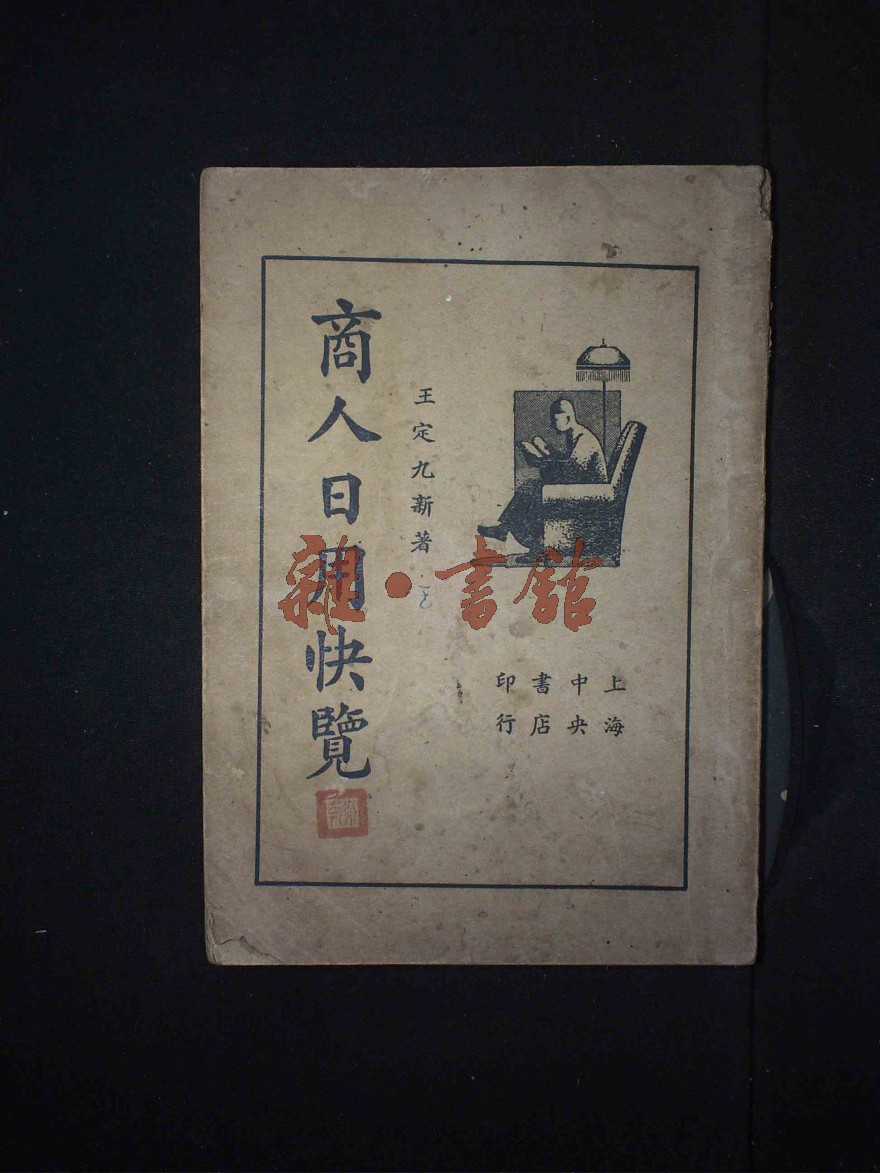 商人日用快覽
王定九新著
上海
中央
書店
印行
雜·書館